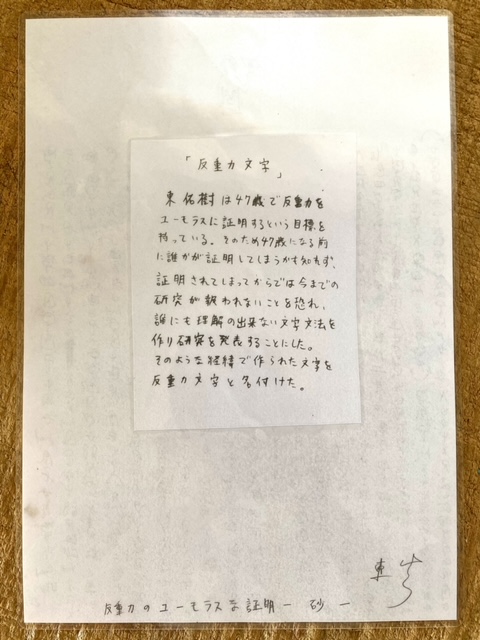 「反重力文字」
東佑樹は47歳で反重力を
ユーモラスに証明するという目標を
持っている。そのため47歳になる前
に誰かが証明してしまうかも知れず、
証明されてしまってからでは今までの
研究が報われないことを恐れ、
誰にも理解の出来ない文字文法を
作り研究を発表することにした。
そのような経緯で作られた文字を
反重力文字と名付けた。
東
反重力のユーモラスな証明 ー 砂 ー